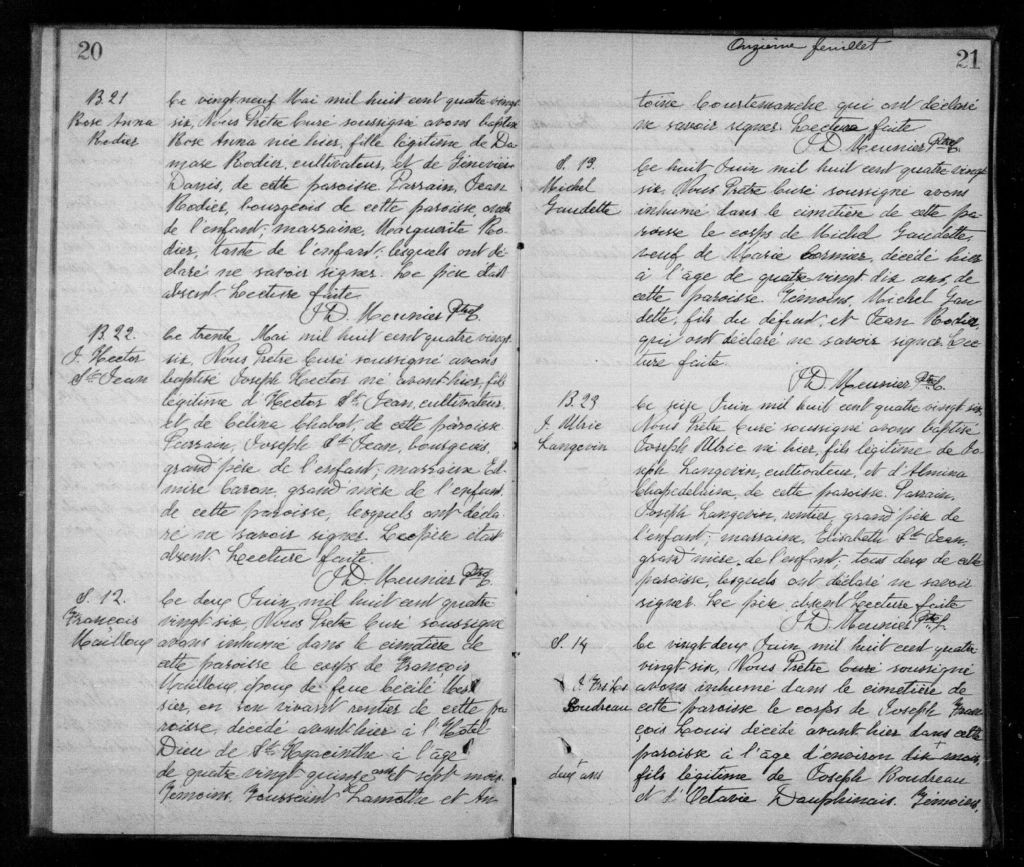 20
B. 21
Rose Anna
Rodier
Ce vingt neuf Mai mil huit cent quatre vingt
six, Nous Prêtre Curé soussigné avons baptisé
Rose Anna née hier, fille légitime de Da-
mase Rodier, cultivateur, et de Geneviève
Danis, de cette paroisse. Parrain, Jean
Rodier, bourgeois de cette paroisse, oncle
de l'enfant; marraine, Marguerite Ro-
dier, tante de l'enfant; lesquels ont dé-
claré ne savoir signer. Le père était
absent. Lecture faite.
J D. Meunier Ptre C.
B. 22.
J. Hector
St Jean
Ce trente Mai mil huit cent quatre vingt
six, Nous Prêtre Curé soussigné avons
baptisé Joseph Hector né avant hier, fils
légitime d'Hector St Jean, cultivateur,
et de Célina Chabot, de cette paroisse
Parrain, Joseph St Jean, bourgeois,
grand père de l'enfant; marraine Ed-
mire Caron, grand mère de l'enfant
de cette paroisse, lesquels ont décla-
ré ne savoir signer. Le père était
absent. Lecture faite.
J D. Meunier Ptre C.
S. 12.
François
Mailloux
Ce deux Juin, mil huit cent quatre
vingt six, Nous Prêtre Curé soussigné
avons inhumé dans le cimetière de
cette paroisse le corps de François
Mailloux, époux de feue Cécile Mes-
sier, en son vivant rentier de cette pa-
roisse, décédé avant hier à l'Hotel
Dieu de St Hyacinthe à l'âge
de quatre vingt quinze ans et sept mois.
Témoins, Toussaint Lamothe et An-
Onzième feuillet
21
toine Courtemanche qui ont déclaré
ne savoir signer. Lecture faite
J D. Meunier Ptre C.
S. 13.
Michel
Gaudette
Ce huit Juin mil huit cent quatre vingt
six, Nous Prêtre Curé soussigné avons
inhumé dans le cimetière de cette pa-
roisse le corps de Michel Gaudette,
veuf de Marie Cormier, décédé hier
à l'âge de quatre vingt dix ans, de
cette paroisse. Témoins, Michel Gau-
dette, fils du défunt, et Jean Rodier,
qui ont déclaré ne savoir signer. Lec-
ture faite.
J D. Meunier Ptre C.
B. 23
J. Ulric
Langevin
Ce seize Juin mil huit cent quatre vingt six,
Nous Prêtre Curé soussigné avons baptisé
Joseph Ulric né hier, fils légitime de Jo-
seph Langevin, cultivateur, et d'Almina
Chapdelaine, de cette paroisse. Parrain,
Joseph Langevin, rentier, grand père de
l'enfant; marraine, Elisabeth St Jean,
grand mère de l'enfant; tous deux de cette
paroisse, lesquels ont déclaré ne savoir
signer. Le père absent. Lecture faite
J D. Meunier Ptre C.
S. 14
J. Frs Ls
Boudreau
deux ans
Ce vingt deux Juin mil huit cent quatre
vingt six, Nous Prêtre Curé soussigné
avons inhumé dans le cimetière de
cette paroisse le corps de Joseph Fran-
çois Louis décédé avant hier dans cette
paroisse à l'âge d'environ dix mois,
fils légitime de Joseph Boudreau
et d'Octavie Dauphinais. Témoins,